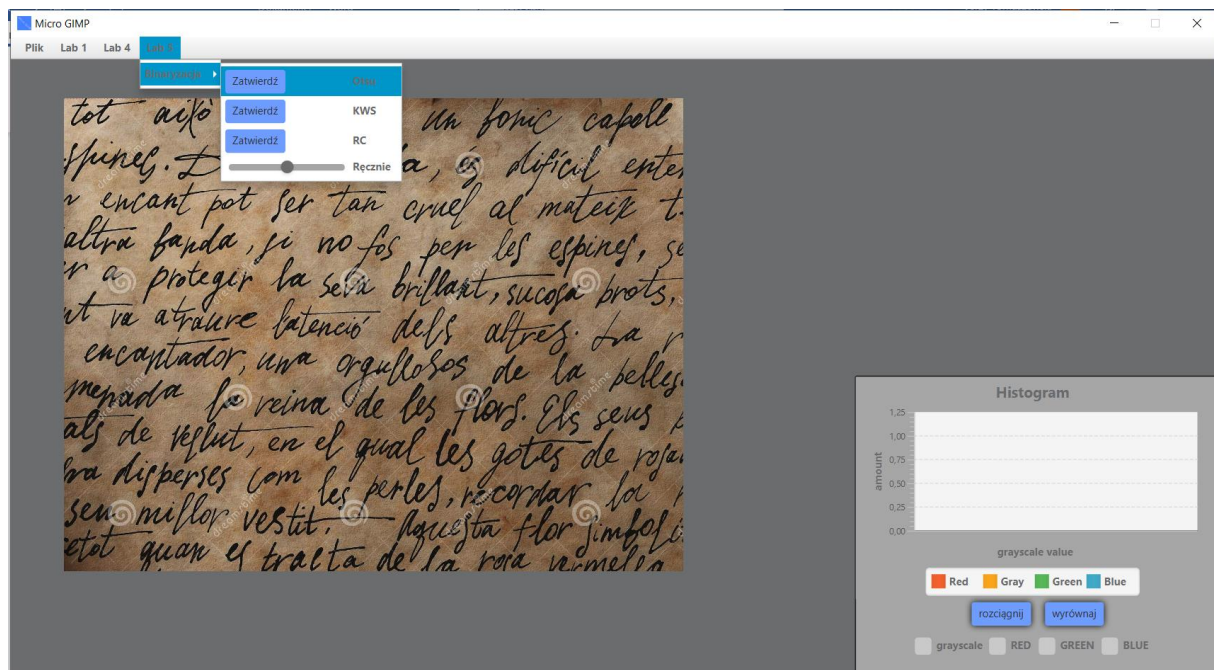 Micro GIMP
Plik Lab 1 Lab 4 Lab 5
Binaryzacja
Zatwierdź Otsu
Zatwierdź KWS
Zatwierdź RC
Ręcznie
tot això un fonic capell
espines. a, és difícil enten
encant pot ser tan cruel al mateix t
altra banda, si no fos per les espines, se
er a protegir la seva brillant, sucosa brots,
nt va atraure l'atenció dels altres. La r
encantador, una orgullosos de la belles
menada la reina de les flors. Els seus p
als de vellut, en el qual les gotes de rosa
bra disperses com les perles, recordar la
seu millor vestit. Aquesta flor simboli
tot quan es tracta de la rosa vermella
dreamstime
Histogram
1,25
1,00
0,75
0,50
0,25
0,00
amount
grayscale value
Red Gray Green Blue
rozciągnij wyrównaj
grayscale RED GREEN BLUE